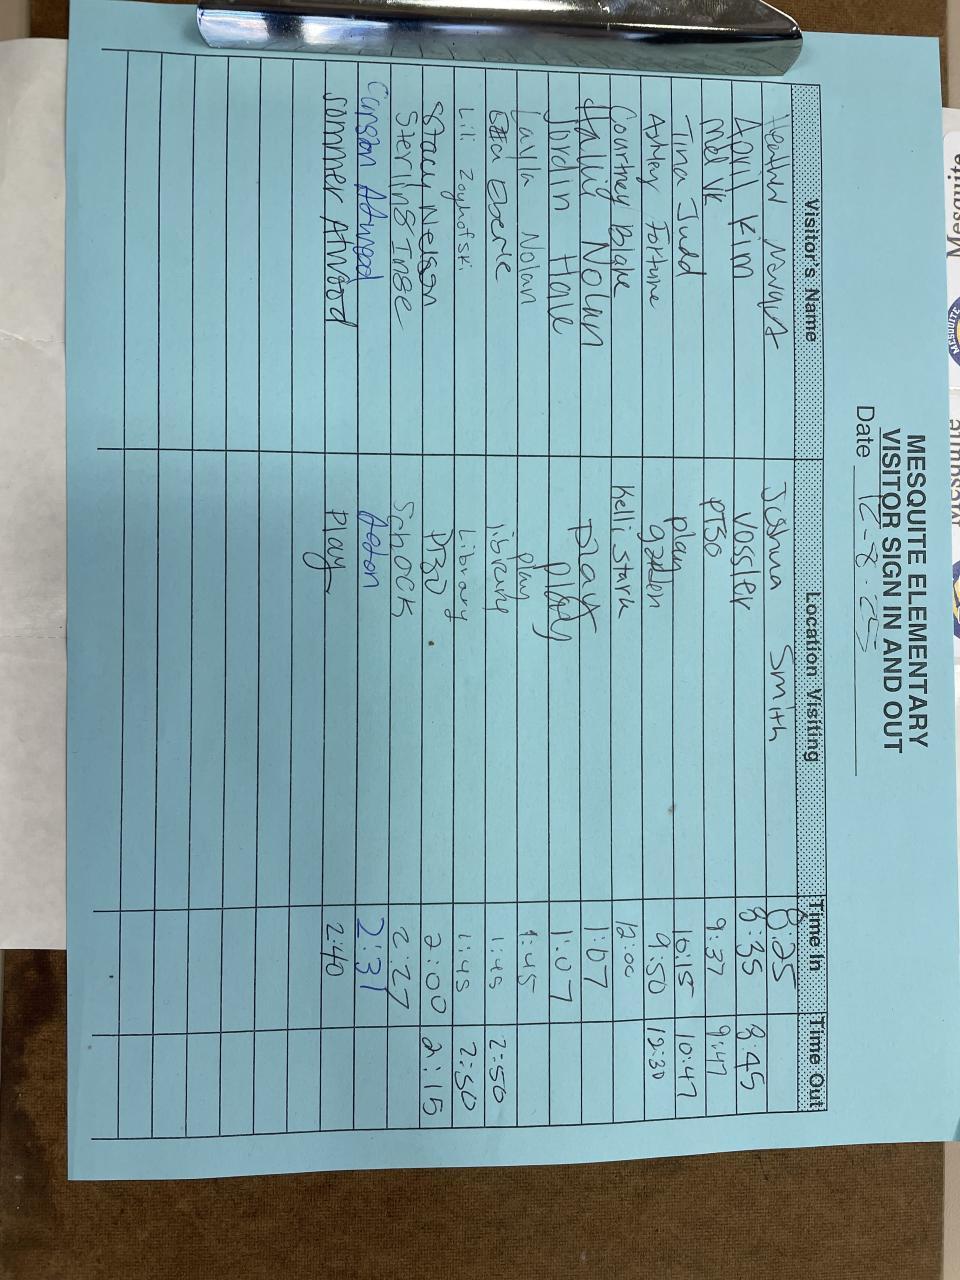 MESQUITE ELEMENTARY
VISITOR SIGN IN AND OUT
Date 12-8-25
Visitor's Name Location Visiting Time In Time Out
Heather Joshua Smith 8:25
April Kim Vossler 8:35 8:45
Mel VK PTSO 9:37 9:47
Tina Judd play 10:15 10:47
Ashley Fortune garden 9:50 12:30
Courtney Blake Kelli Stark 12:00
Nolan Play 1:07
Jordin Hale play 1:07
Layla Nolan play 1:45
Eberle library 1:45 2:50
Lili Library 1:45 2:50
Stacy Nelson PTSO 2:00 2:15
Sterling Inge Schock 2:27
Carson Atwood 2:31
Sommer Atwood Play 2:40
Mesquite
MESQUITE